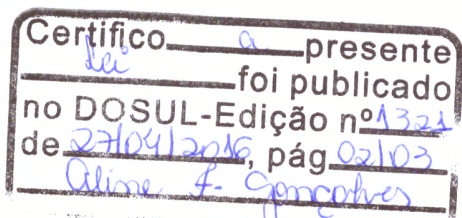 Certifico a presente
Lei foi publicado
no DOSUL-Edição nº 1321
de 27/04/2016, pág 02/03
Aline F. Gonçalves